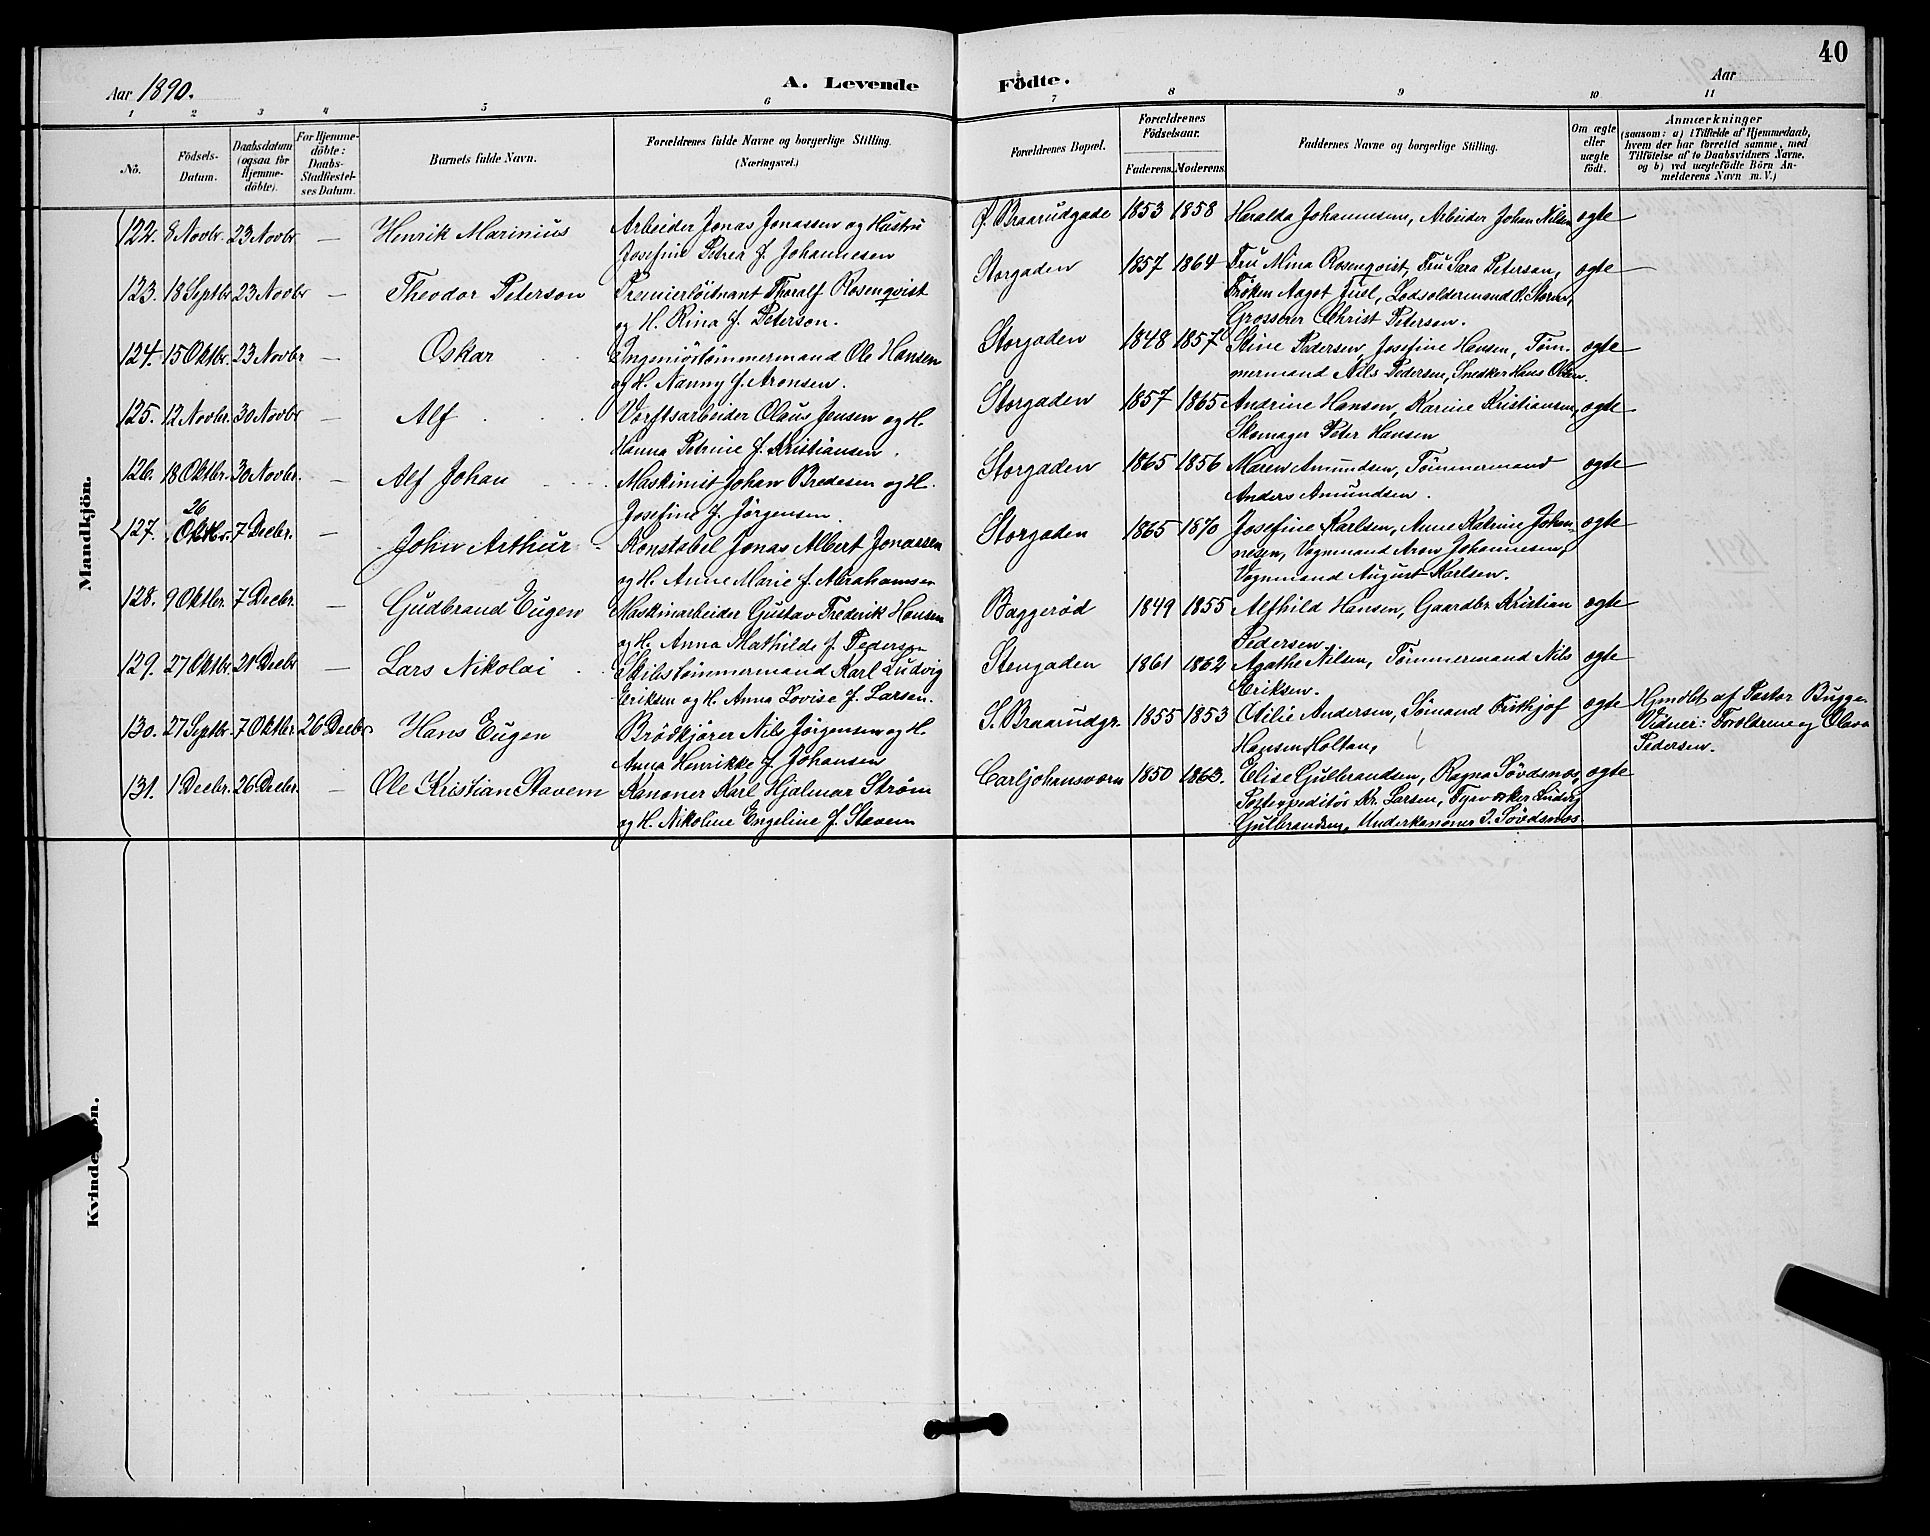 40
Aar 1890. A. Levende Födte. Aar
1 2 3 4 5 6 7 8 9 10 11
No. Födsels-Datum. Daabsdatum (ogsaa for Hjemme-döbte). For Hjemme-döbte: Daabs-Stadfæstel-ses Datum. Barnets fulde Navn. Forældrenes fulde Navne og borgerlige Stilling. (Næringsvei.) Forældrenes Bopæl. Forældrenes Födselsaar. Faderens. Moderens. Faddernes Navne og borgerlige Stilling. Om ægte eller uægte födt. Anmærkninger (saasom: a) i Tilfælde af Hjemmedaab, hvem der har forrettet samme, med Tilföielse af to Daabsvidners Navne, og b) ved uægtefödte Börn An-melderens Navn m. V.)
Mandkjön.
122. 8 Novbr. 23 Novbr — Henrik Marinius Arbeider Jonas Jonassen og Hustru Ø. Braarudgade 1853 1858 Heralda Johannesen, Arbeider Johan Nilsen ægte
Josefine Petrea f. Johannesen
123. 18 Septbr 23 Novbr — Theodor Peterson Premierløitnant Thoralf Rosenqvist Storgaden 1857 1864 Fru Mina Rosenqvist, Fru Sara Peterson, ægte
og H. Rina f. Peterson. Frøken Aagot Juel, Lodsoldermand O. Storm,
Grosserer Christ Petersen.
124. 15 Oktbr. 23 Novbr — Oskar Ingeniørtømmermand Ole Hansen Storgaden 1848 1857 Stine Pedersen, Josefine Hansen, Tøm- ægte
og H. Nanny f. Aronsen. mermand Nils Pedersen, Snedker Hans Olsen.
125. 12 Novbr. 30 Novbr — Alf Verftsarbeider Olaus Jensen og H. Storgaden 1857 1865 Andrine Hansen, Karine Kristiansen, ægte
Hanna Petrine f. Kristiansen. Skomager Peter Hansen
126. 18 Oktbr. 30 Novbr. — Alf Johan Maskinist Johan Bredesen og H. Storgaden 1865 1856 Maren Amundsen, Tømmermand ægte
Josefine f. Jørgensen Anders Amundsen.
127. 26 Oktbr. 7 Decbr. — John Arthur Konstabel Jonas Albert Jonassen Storgaden 1865 1870 Josefine Karlsen, Anne Katrine Johan- ægte
og H. Anne Marie f. Abrahamsen nesen, Vognmand Aron Johannesen,
Vognmand August Karlsen.
128. 9 Oktbr. 7 Decbr. — Gudbrand Eugen Maskinarbeider Gustav Frederik Hansen Baggerød 1849 1855 Alfhild Hansen, Gaardbr. Kristian ægte
og H. Anna Mathilde f. Pedersen Pedersen
129. 27 Oktbr. 21 Decbr — Lars Nikolai Skibstømmermand Karl Ludvig Stengaden 1861 1862 Agathe Nilsen, Tømmermand Nils ægte
Eriksen og H. Anna Lovise f. Larsen. Eriksen.
130. 27 Septbr. 7 Oktbr 26 Decbr. Hans Eugen Brødkjører Nils Jørgensen og H. S. Braarudgr. 1855 1853 Otilie Andersen, Sømand Frithjof ægte Hjmdbt af Pastor Bugge
Anna Henrikke f. Johansen Hansen Holtan, Vidner: Forældrene og Olava
Pedersen.
131. 1 Decbr. 26 Decbr. — Ole Kristian Stavem Kanoner Karl Hjalmar Strøm Carljohansværn 1850 1863. Elise Gulbrandsen, Ragna Søvdsnæs, ægte
og H. Nikoline Engeline f. Stavem Postexpeditør Kr. Larsen, Fyrvorker Ludvig
Gulbrandsen, Underkanoner I. Søvdsnæs
Kvindekjön.